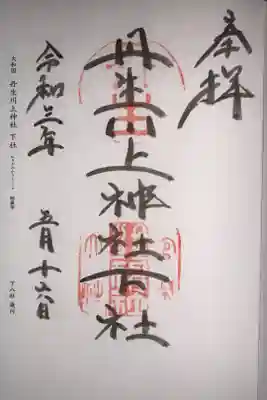 奉拝
丹生川上神社下社
令和三年 五月十六日
大和国 丹生川上神社 下社